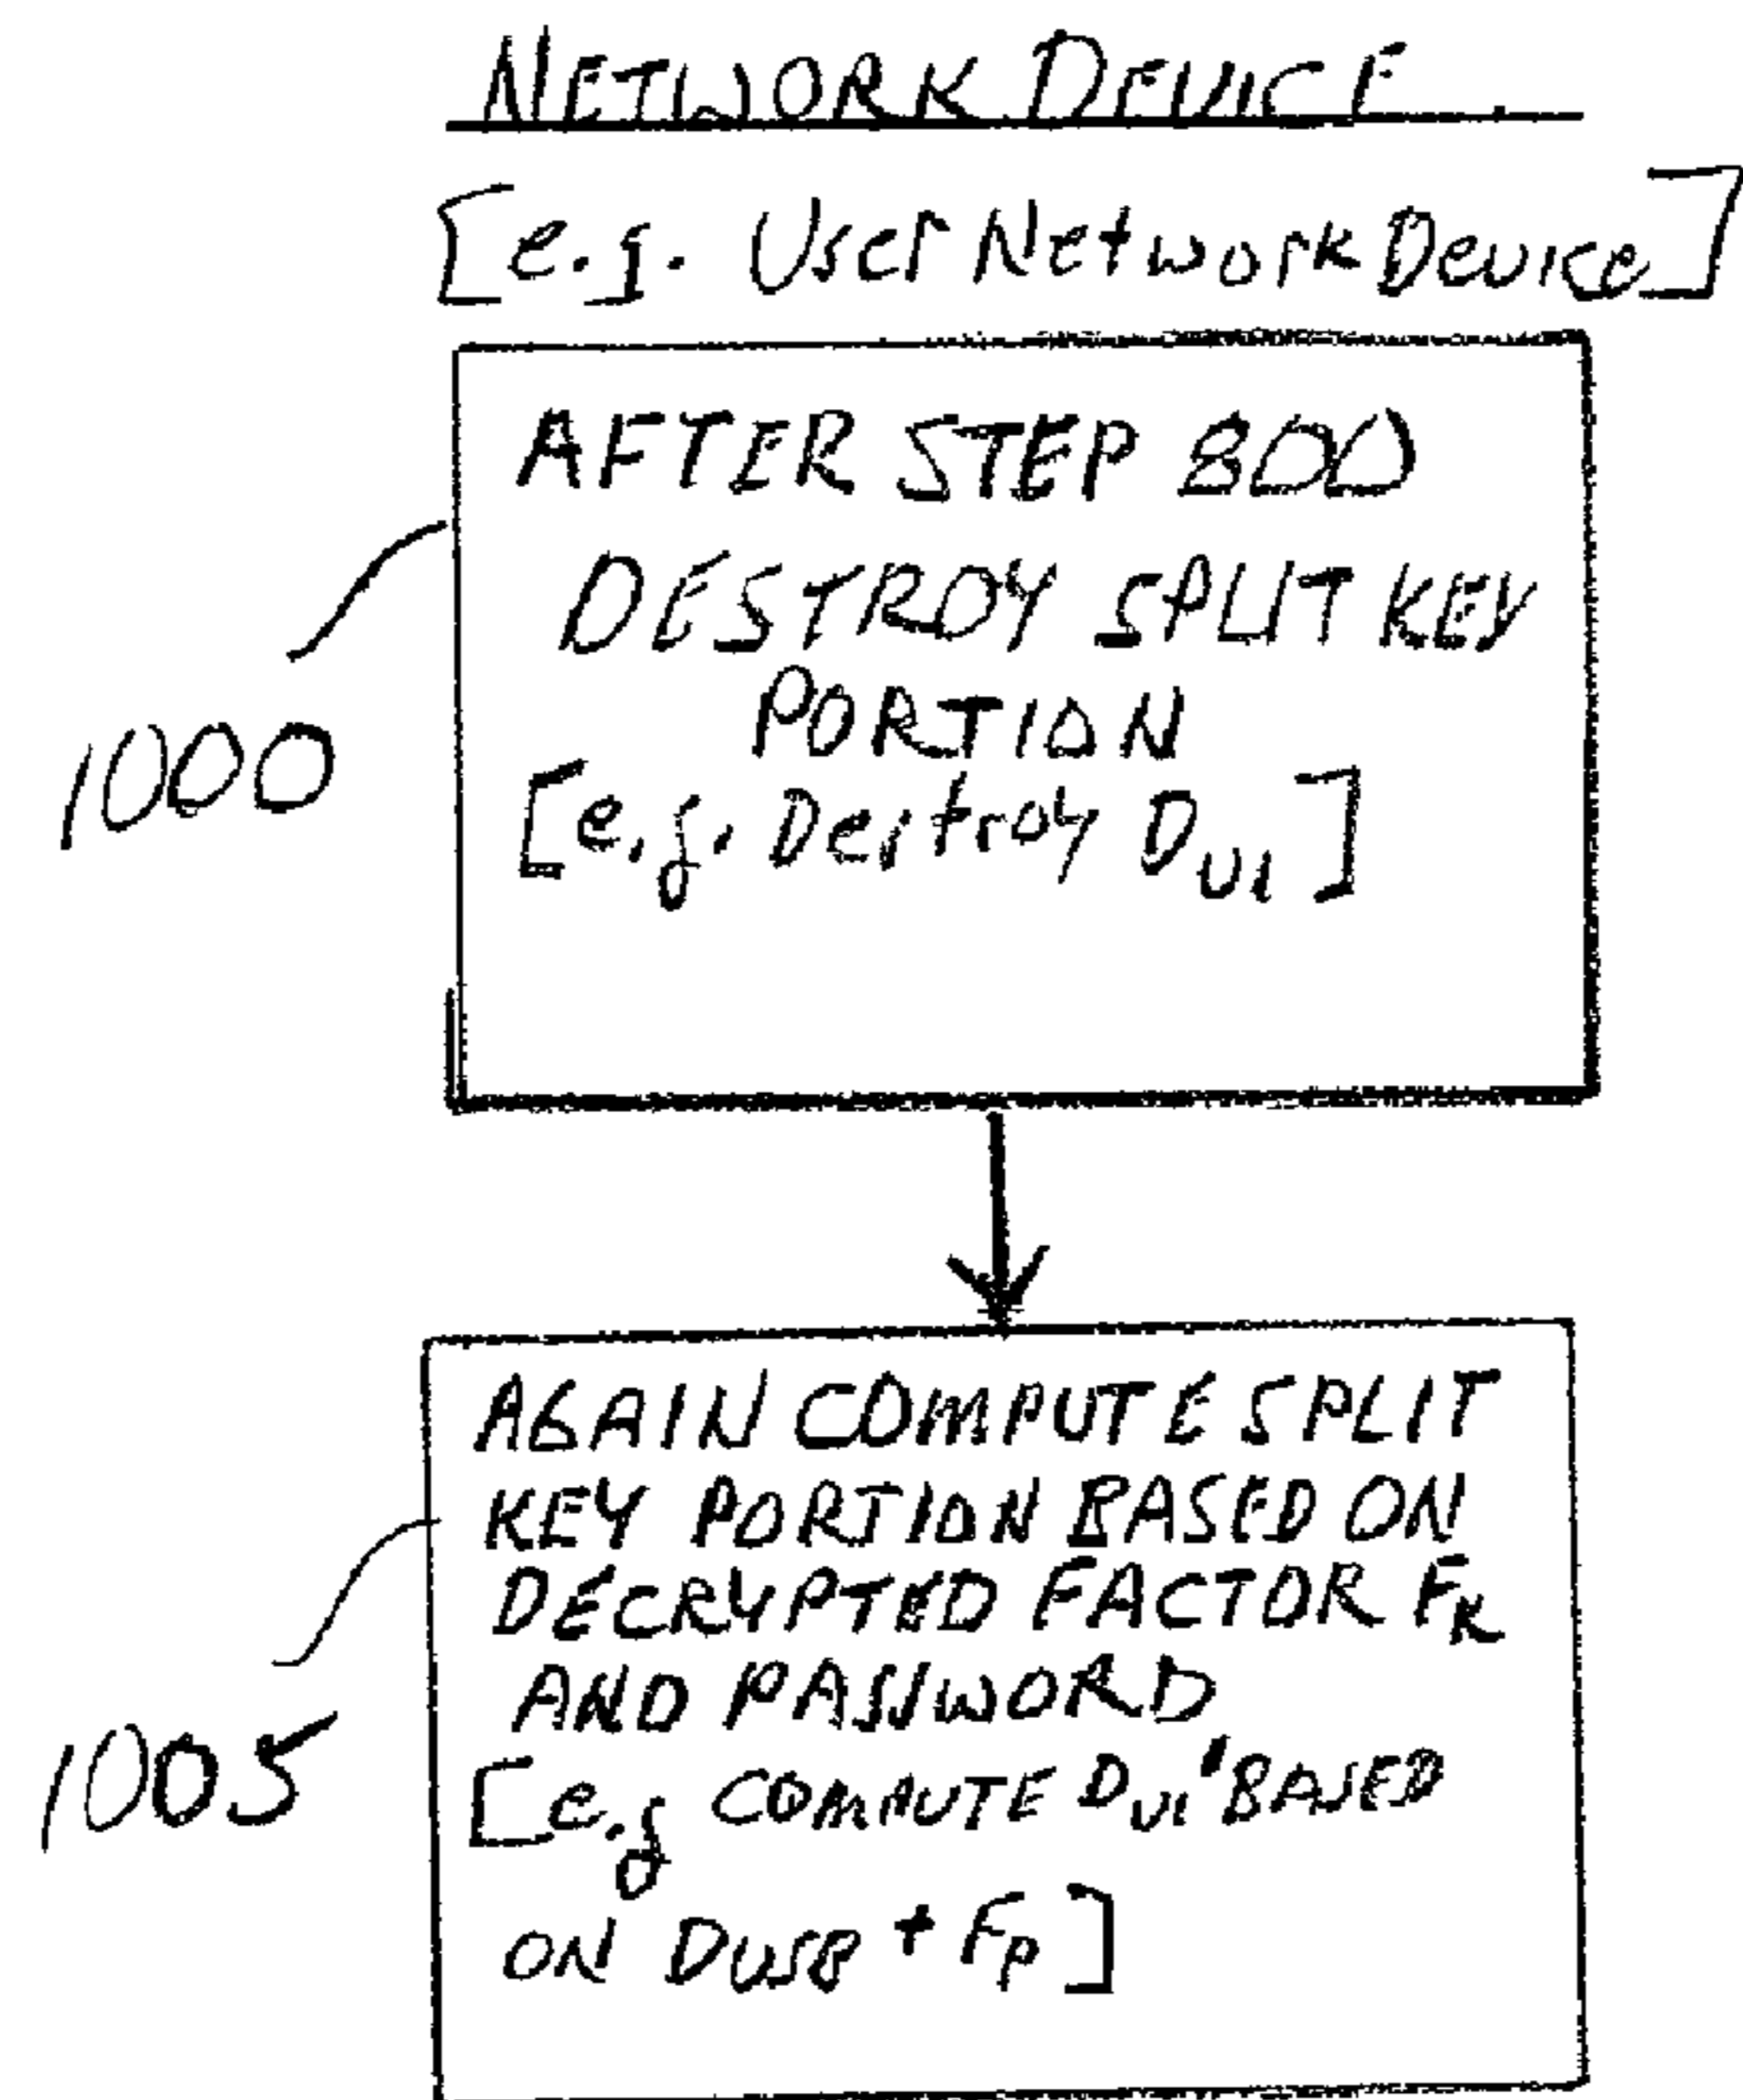 NETWORK DEVICE
[e.g. User Network Device]
AFTER STEP 800
DESTROY SPLIT KEY
PORTION
[e.g. Destroy D_U1]
1000
AGAIN COMPUTE SPLIT
KEY PORTION BASED ON
DECRYPTED FACTOR F_K
AND PASSWORD
[e.g COMPUTE D_U1' BASED
ON DUSB + F_P]
1005